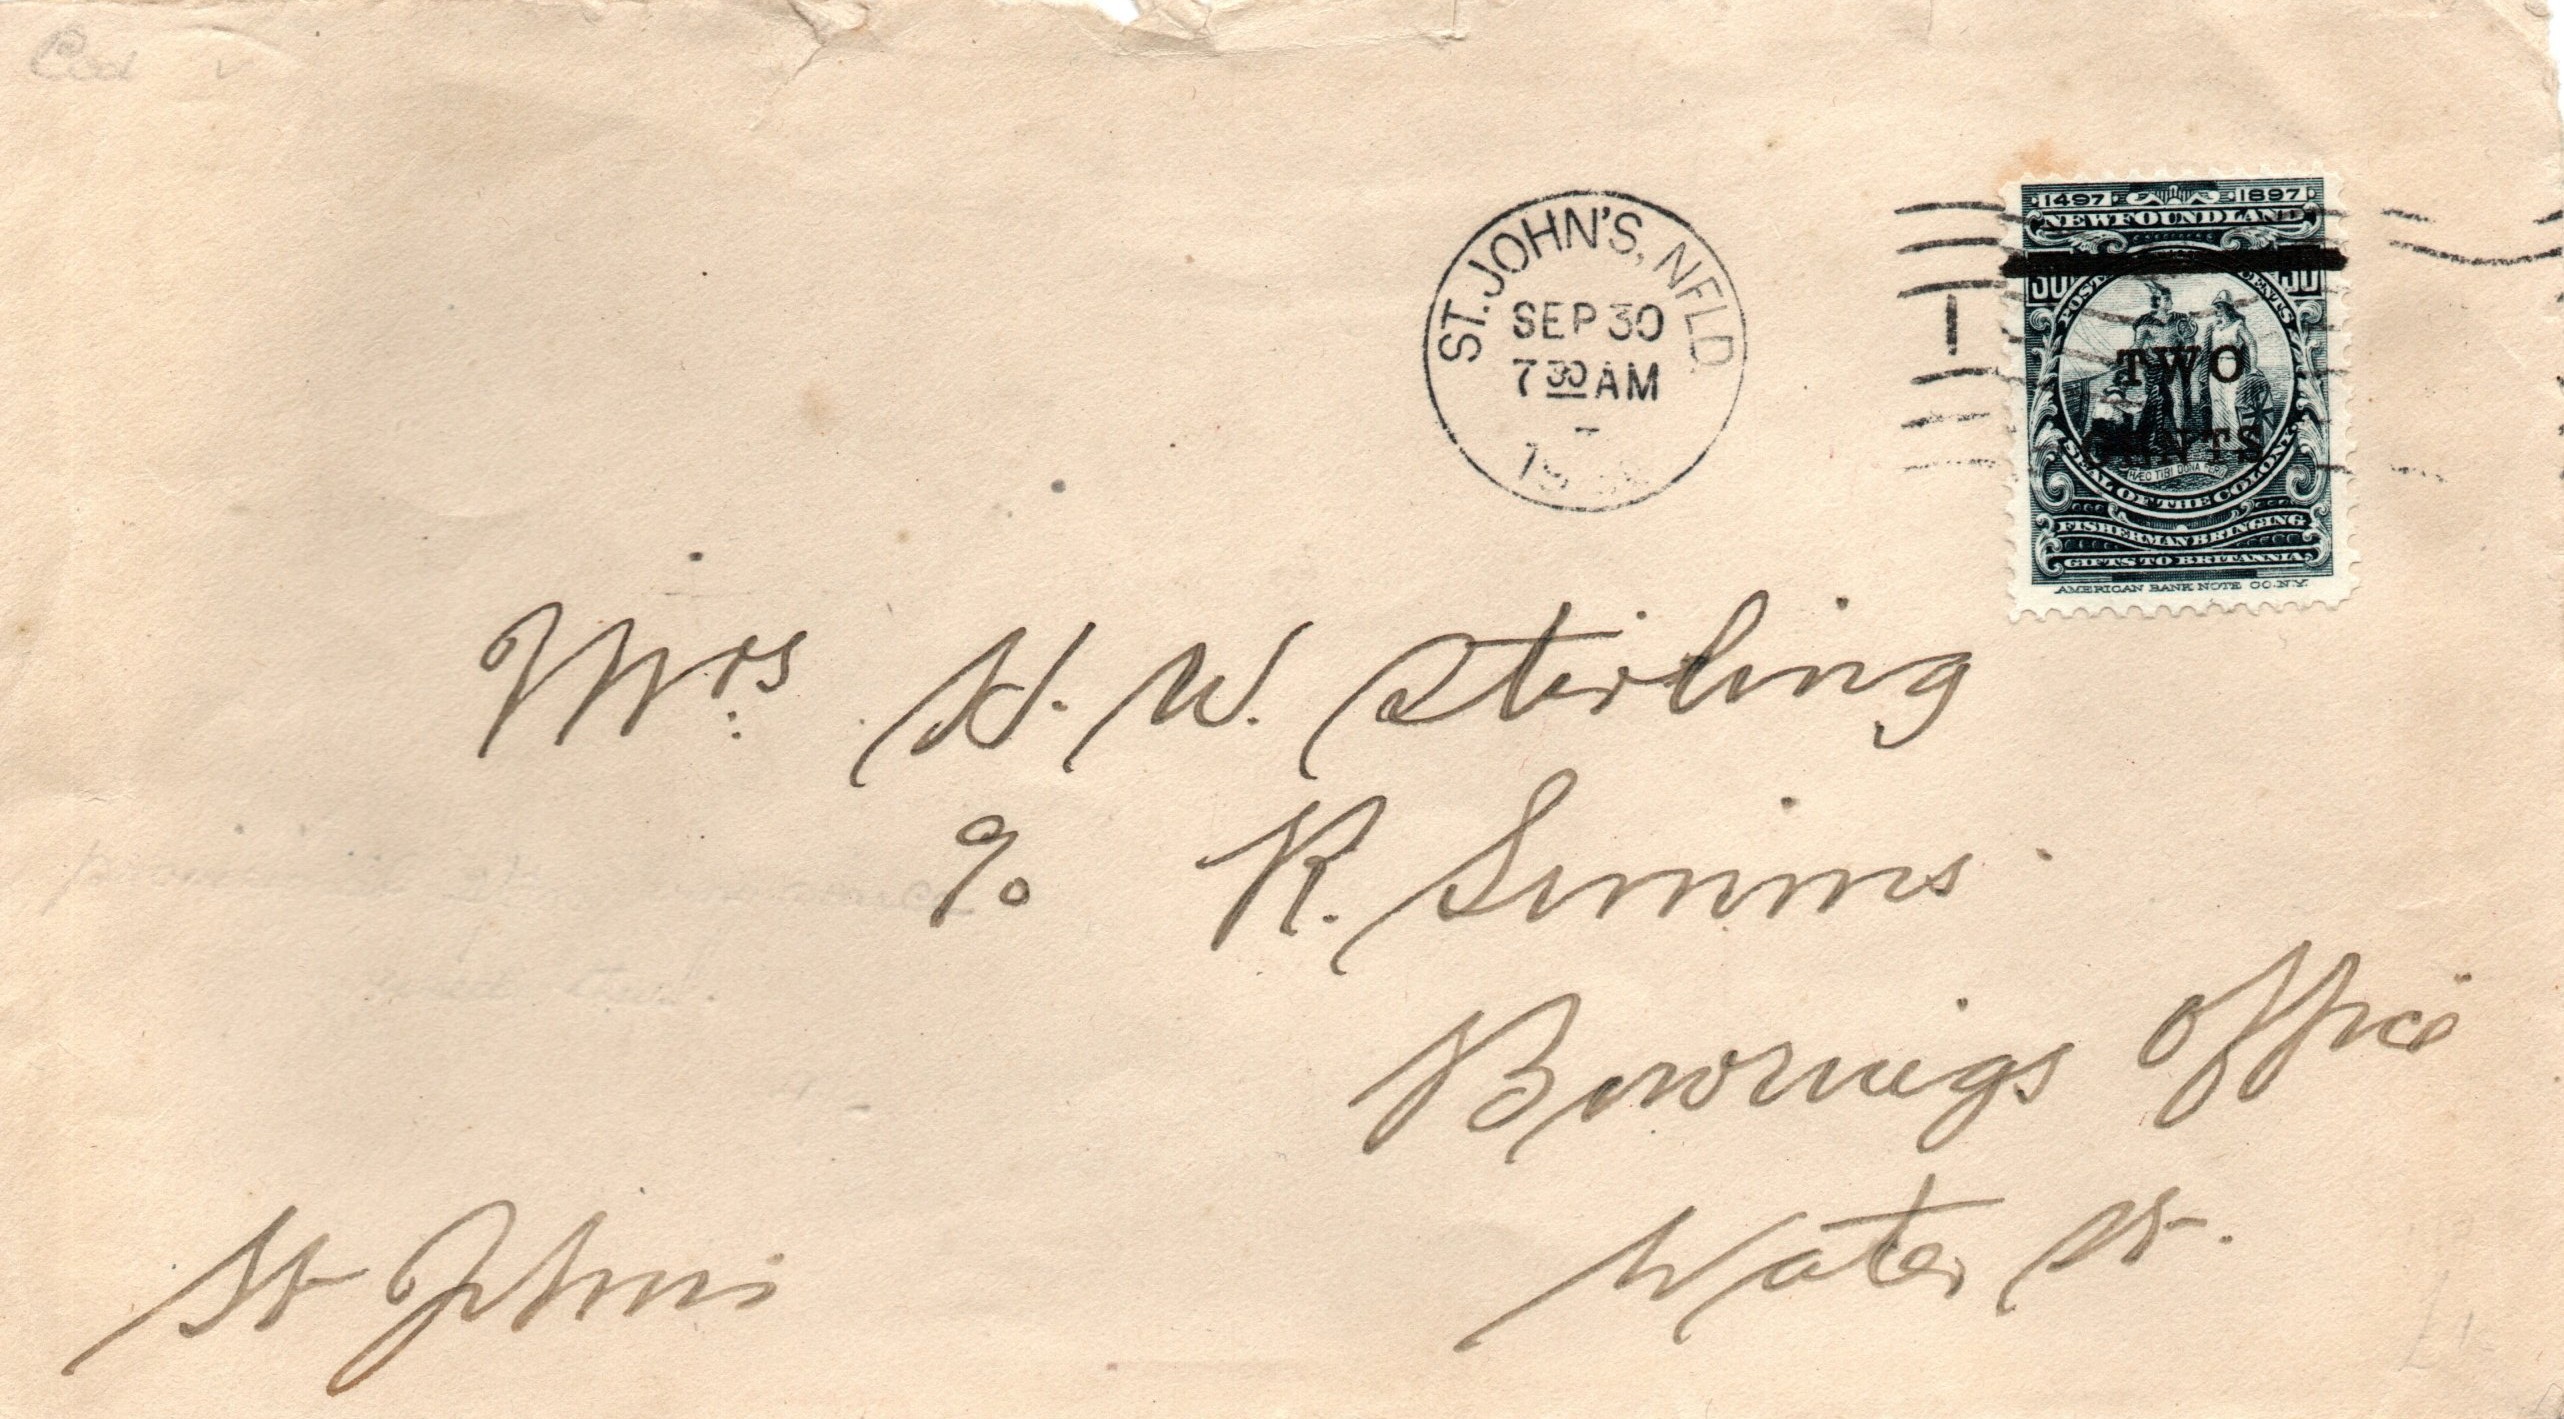 ST. JOHN'S, NFLD.
SEP 30
7 30 AM
19
1497 1897
NEWFOUNDLAND
30 30
TWO
CENTS
HÆC TIBI DONA FERO
SEAL OF THE COLONY
FISHERMAN BRINGING
GIFTS TO BRITANNIA
AMERICAN BANK NOTE CO. N.Y.
Mrs. H. W. Stirling
c/o R. Simms
Bowrings Office
Water St.
St Johns